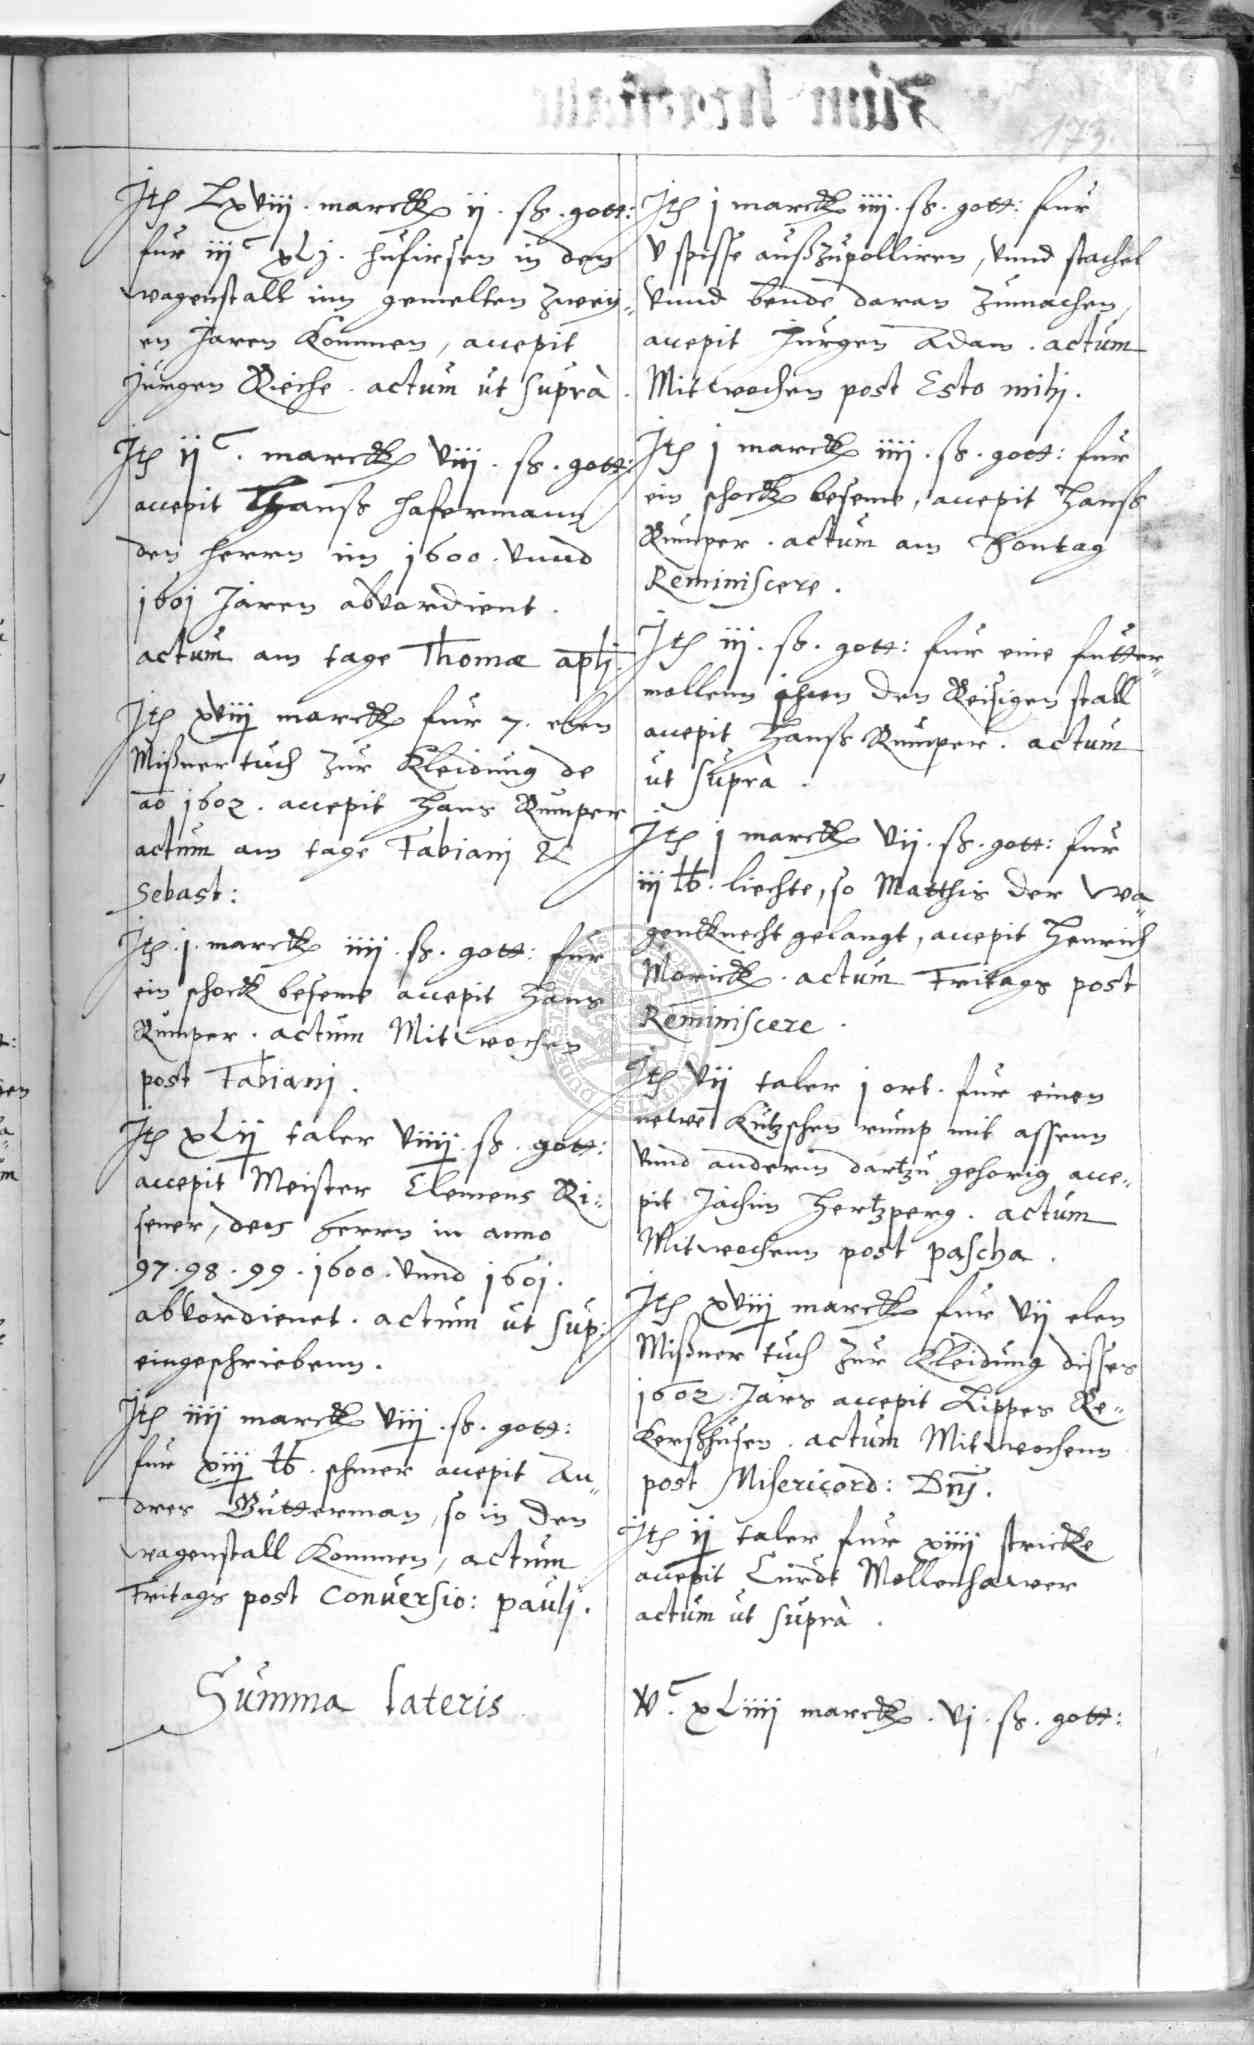 173.
Jtem Lxviii. marck ii. ß. gott:
fur iiiᶜ xLj. hufirsen in den
wagenstall inn gemelten zweij=
en Jaren kommen, accepit
Jurgen Rieche. actum ut suprà.
Jtem iiᶜ. marck viii. ß. gott:
accepit Hanß Hafermann
den herrn im 1600. vnnd
1601 Jaren abvordient.
actum am tage Thomæ apli.
Jtem xviii marck fur 7. elen
Mißner tuch zur Kleidung de
ao 1602. accepit Hans Rumper
actum am tage Fabiani &
Sebast:
Jtem. j. marck iiii. ß. gott: fur
ein schock beseme accepit Hans
Rumper. actum Mitwochen
post Fabiani.
Jtem xLii taler viiii. ß. gott:
accepit Meister Clemens Ri=
sener, dens herrn in anno
97. 98. 99. 1600. vnnd 1601.
abvordienet. actum ut sup:
eingeschriebenn.
Jtem iiii marck viii. ß. gott:
fur xiii lb. schmer accepit An=
dres Butterman, so in den
wagenstall kommen, actum
Fritags post Conversio: pauli.
Summa lateris
Jtem j marck iiii. ß. gott: fur
v spisse außzupolliren, vnnd stachel
vnnd bende daran zumachen,
accepit Jurgen Adam. actum
Mitwochen post Esto mihi.
Jtem j marck iiii. ß. gott: fur
ein schock beseme, accepit Hanß
Rumper. actum am Sontag
Reminiscere.
Jtem iii. ß. gott: fur eine futter=
mollenn ihnen den Reisigen stall
accepit Hanß Rumper. actum
ut suprà.
Jtem j marck vii. ß. gott: fur
iii lb. liechte, so Matthis der wa=
genknecht gelangt, accepit Henrich
Morick. actum Fritags post
Reminiscere.
Jtem vii taler j ort. fur einen
newē kutzschen rump mit assenn
vnnd anderm dartzu gehorig acce=
pit Jachim Hertzperg. actum
Mitwochenn post pascha.
Jtem xviii marck fur vii elen
Mißner tuch zur Kleidung disses
1602. Jars accepit Lippes Re=
kerßhusen. actum Mitwochenn
post Misericord: Dni.
Jtem ii taler fur xiiii stricke
accepit Curdt Mollenhawer
actum ut suprà.
vᶜ. xLiiii marck. vi. ß. gott: